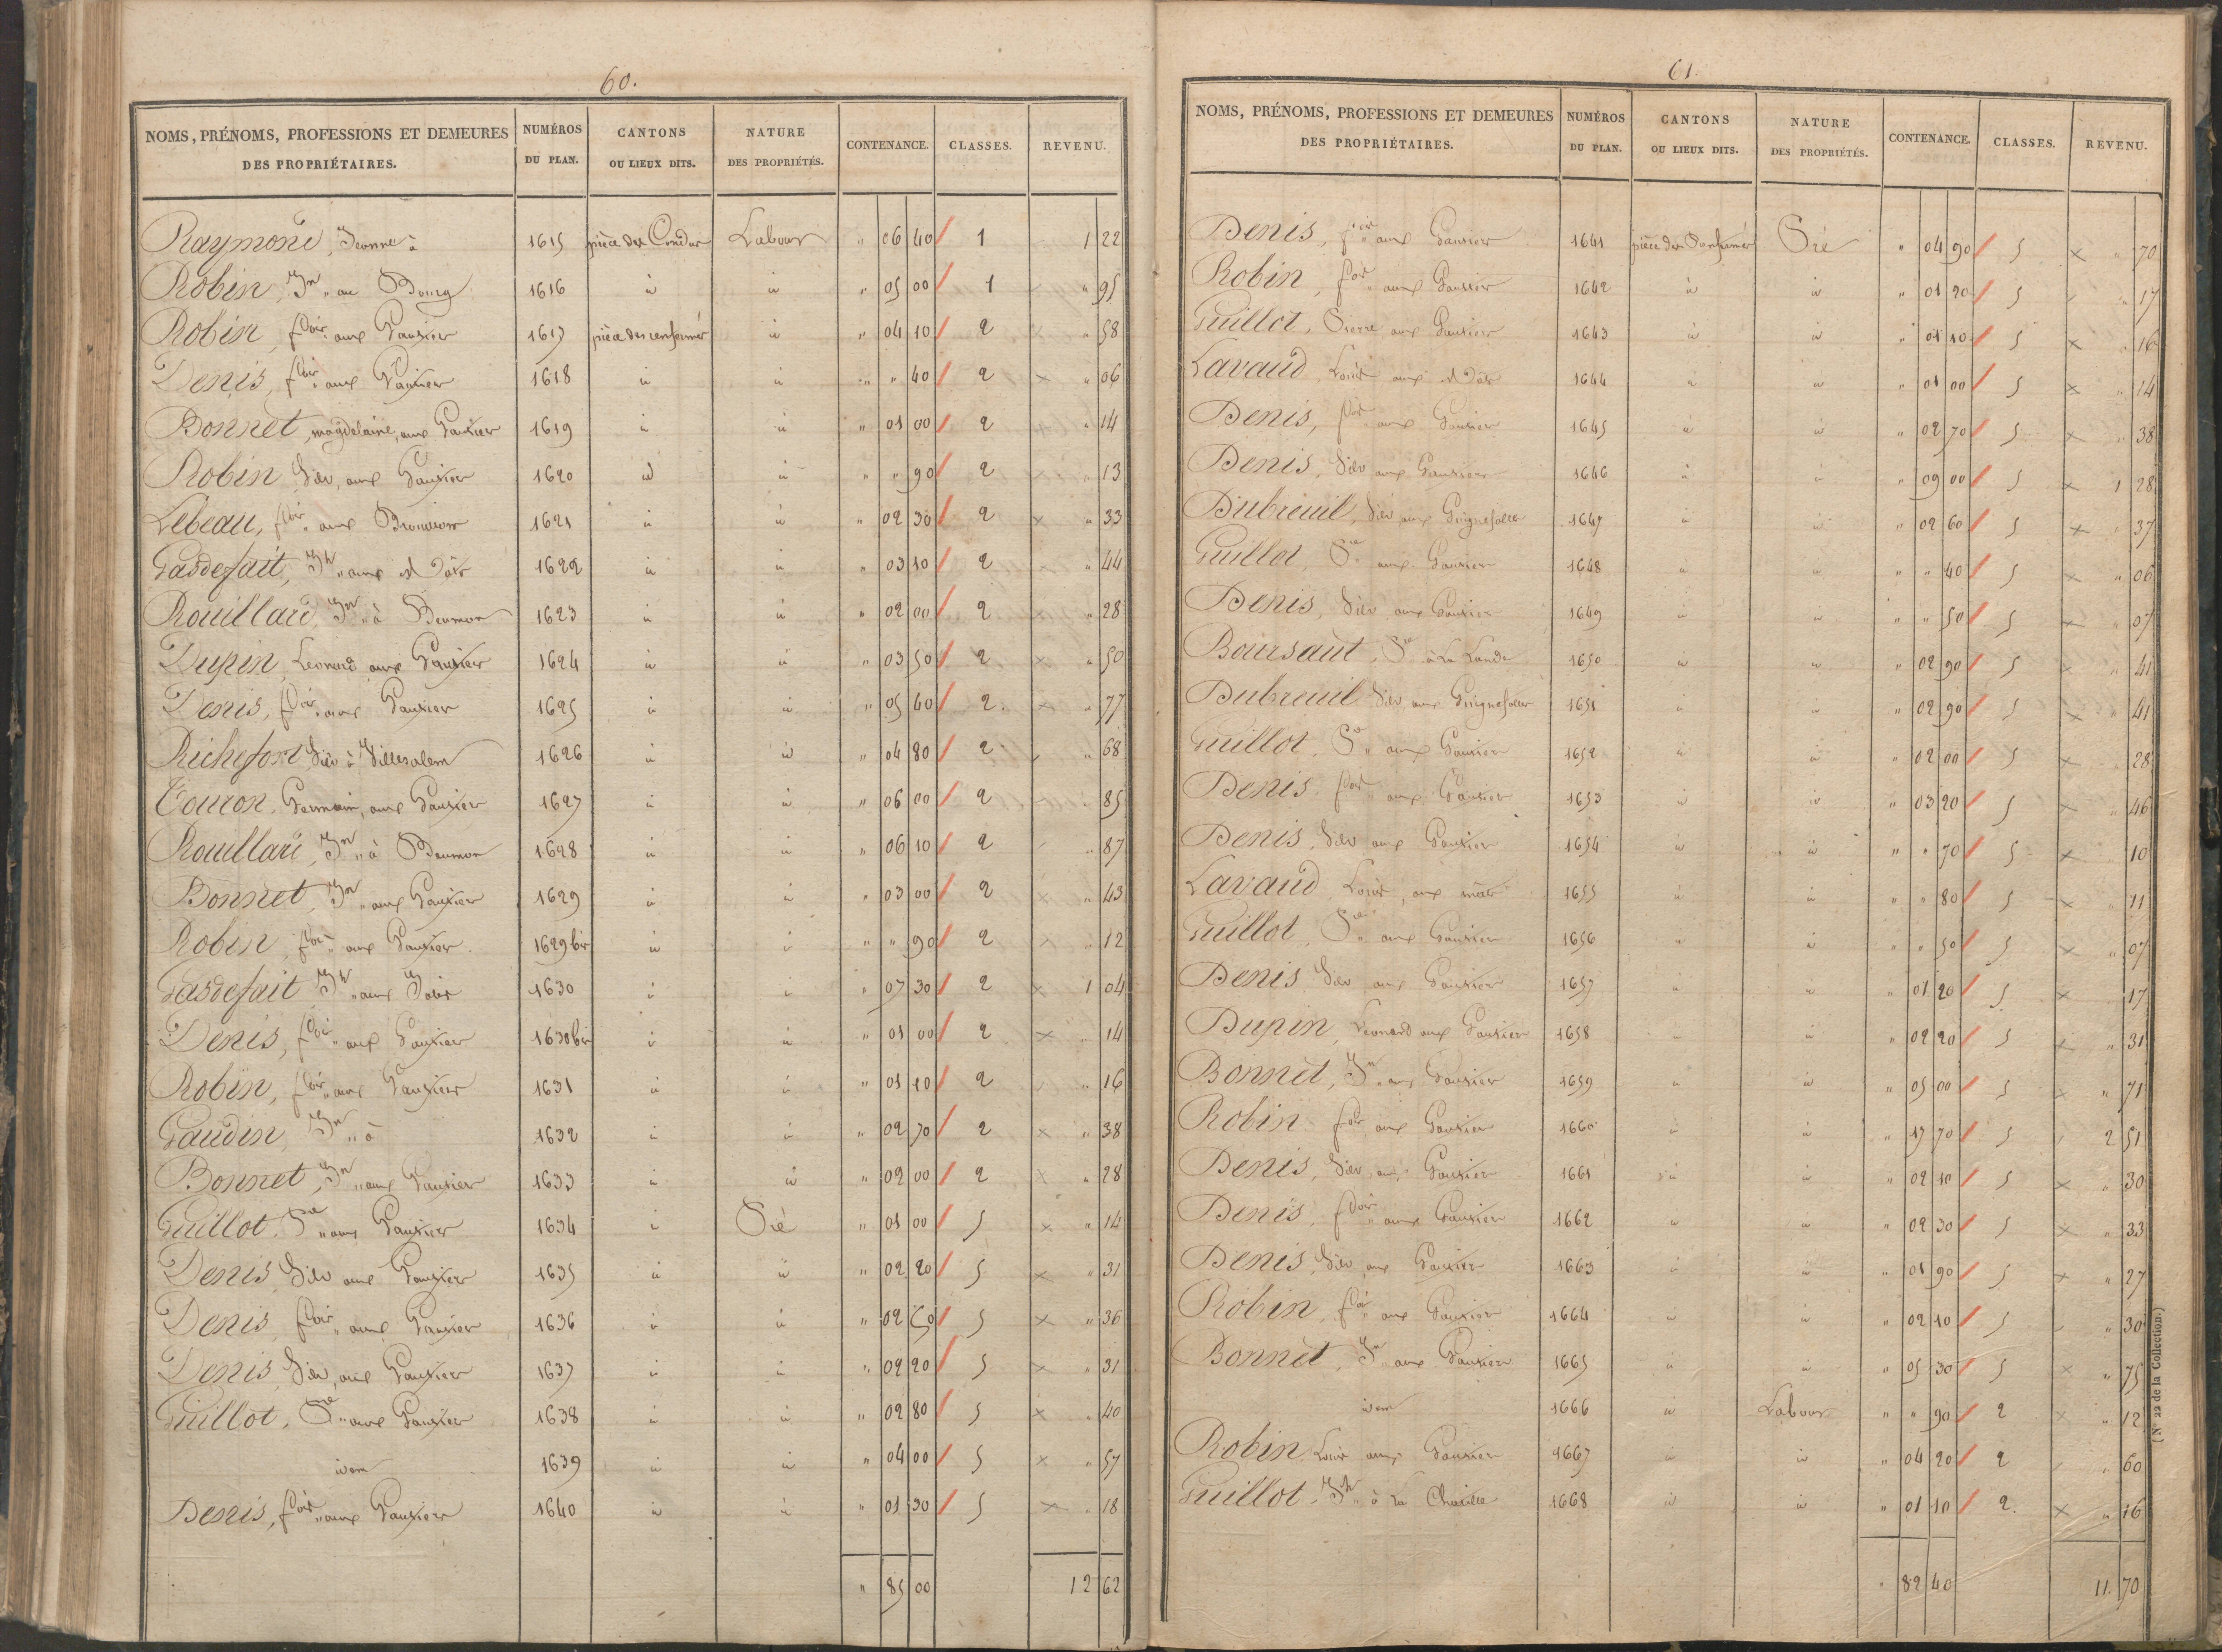 60.
NOMS, PRÉNOMS, PROFESSIONS ET DEMEURES DES PROPRIÉTAIRES. NUMÉROS DU PLAN. CANTONS OU LIEUX DITS. NATURE DES PROPRIÉTÉS. CONTENANCE. CLASSES. REVENU.
Raymond, Jeanne à 1615 pièce des Labour " 06 40 1 1 22
Robin, Jn " au Bourg 1616 id id " 05 00 1 " 95
Robin, fois aux Gautier 1617 pièce des renfermés id " 04 10 2 × " 58
Denis, fois " aux Gautier 1618 id id " " 40 2 × " 06
Bonnet, magdelaine, aux Gautier 1619 id id " 01 00 2 × " 14
Robin, aux Gautier 1620 id id " " 90 2 × " 13
Lebeau, fois " aux 1621 id id " 02 30 2 × " 33
Gasdefait, Jh " aux 1622 id id " 03 10 2 × " 44
Rouillard, Jn " à Beumon 1623 id id " 02 00 2 × " 28
Dupin, Léonard aux Gautier 1624 id id " 03 50 2 × " 50
Denis, fois " aux Gautier 1625 id id " 05 40 2 × " 77
Richefort à Villesalem 1626 id id " 04 80 2 " 68
Touron, Germain, aux Gautier 1627 id id " 06 00 2 × " 85
Rouillard, Jn " à Beumon 1628 id id " 06 10 2 " 87
Bonnet, Jn " aux Gautier 1629 id id " 03 00 2 × " 43
Robin, fois " aux Gautier 1629 bis id id " " 90 2 × " 12
Gasdefait Jh " aux 1630 id id " 07 30 2 × 1 04
Denis, fois " aux Gautier 1630 bis id id " 01 00 2 × " 14
Robin, fois " aux Gautier 1631 id id " 01 10 2 " 16
Gaudin, Jn " à 1632 id id " 02 70 2 × " 38
Bonnet, Jn " aux Gautier 1633 id id " 02 00 2 × " 28
Guillot, Pre " aux Gautier 1634 id Pré " 01 00 5 × " 14
Denis, aux Gautier 1635 id id " 02 20 5 × " 31
Denis, fois " aux Gautier 1636 id id " 02 5 × " 36
Denis, aux Gautier 1637 id id " 02 20 5 × " 31
Guillot, Pre " aux Gautier 1638 id id " 02 80 5 × " 40
idem 1639 id id " 04 00 5 × " 57
Denis, fois " aux Gautier 1640 id id " 01 30 5 × " 18
" 85 00 12 62
61.
NOMS, PRÉNOMS, PROFESSIONS ET DEMEURES DES PROPRIÉTAIRES. NUMÉROS DU PLAN. CANTONS OU LIEUX DITS. NATURE DES PROPRIÉTÉS. CONTENANCE. CLASSES. REVENU.
Denis, fois " aux Gautier 1641 pièce des Pré " 04 90 5 × " 70
Robin, fois " aux Gautier 1642 id id " 01 20 5 " 17
Guillot, Pierre aux Gautier 1643 id id " 01 10 5 × " 16
Lavaud, Louis aux 1644 id id " 01 00 5 × " 14
Denis, fois aux Gautier 1645 id id " 02 70 5 × " 38
Denis, aux Gautier 1646 id id " 09 00 5 × 1 28
Dubreuil, aux 1647 id id " 02 60 5 × " 37
Guillot, Pre aux Gautier 1648 id id " " 40 5 × " 06
Denis, aux Gautier 1649 id id " " 50 5 × " 07
Boursaut, Pre à La Lande 1650 id id " 02 90 5 × " 41
Dubreuil aux 1651 id id " 02 90 5 × " 41
Guillot, Pre " aux Gautier 1652 id id " 02 00 5 × " 28
Denis, fois " aux Gautier 1653 id id " 03 20 5 × " 46
Denis, aux Gautier 1654 id id " " 70 5 × " 10
Lavaud, Louis, aux 1655 id id " " 80 5 × " 11
Guillot, Pre " aux Gautier 1656 id id " " 50 5 × " 07
Denis, aux Gautier 1657 id id " 01 20 5 × " 17
Dupin, Léonard aux Gautier 1658 id " 02 20 5 × " 31
Bonnet, Jn " aux Gautier 1659 id id " 05 00 5 × " 71
Robin fois aux Gautier 1660 id id " 17 70 5 2 51
Denis, aux Gautier 1661 id id " 02 10 5 × " 30
Denis, fois " aux Gautier 1662 id id " 02 30 5 × " 33
Denis, aux Gautier 1663 id id " 01 90 5 × " 27
Robin, fois " aux Gautier 1664 id id " 02 10 5 " 30
Bonnet, Jn " aux Gautier 1665 id id " 05 30 5 × " 75
idem 1666 id Labour " " 90 2 × " 12
Robin, Louis aux Gautier 1667 id id " 04 20 2 " 60
Guillot, Jh " à La 1668 id id " 01 10 2 × " 16
" 82 40 11. 70
(N° 22 de la Collection.)